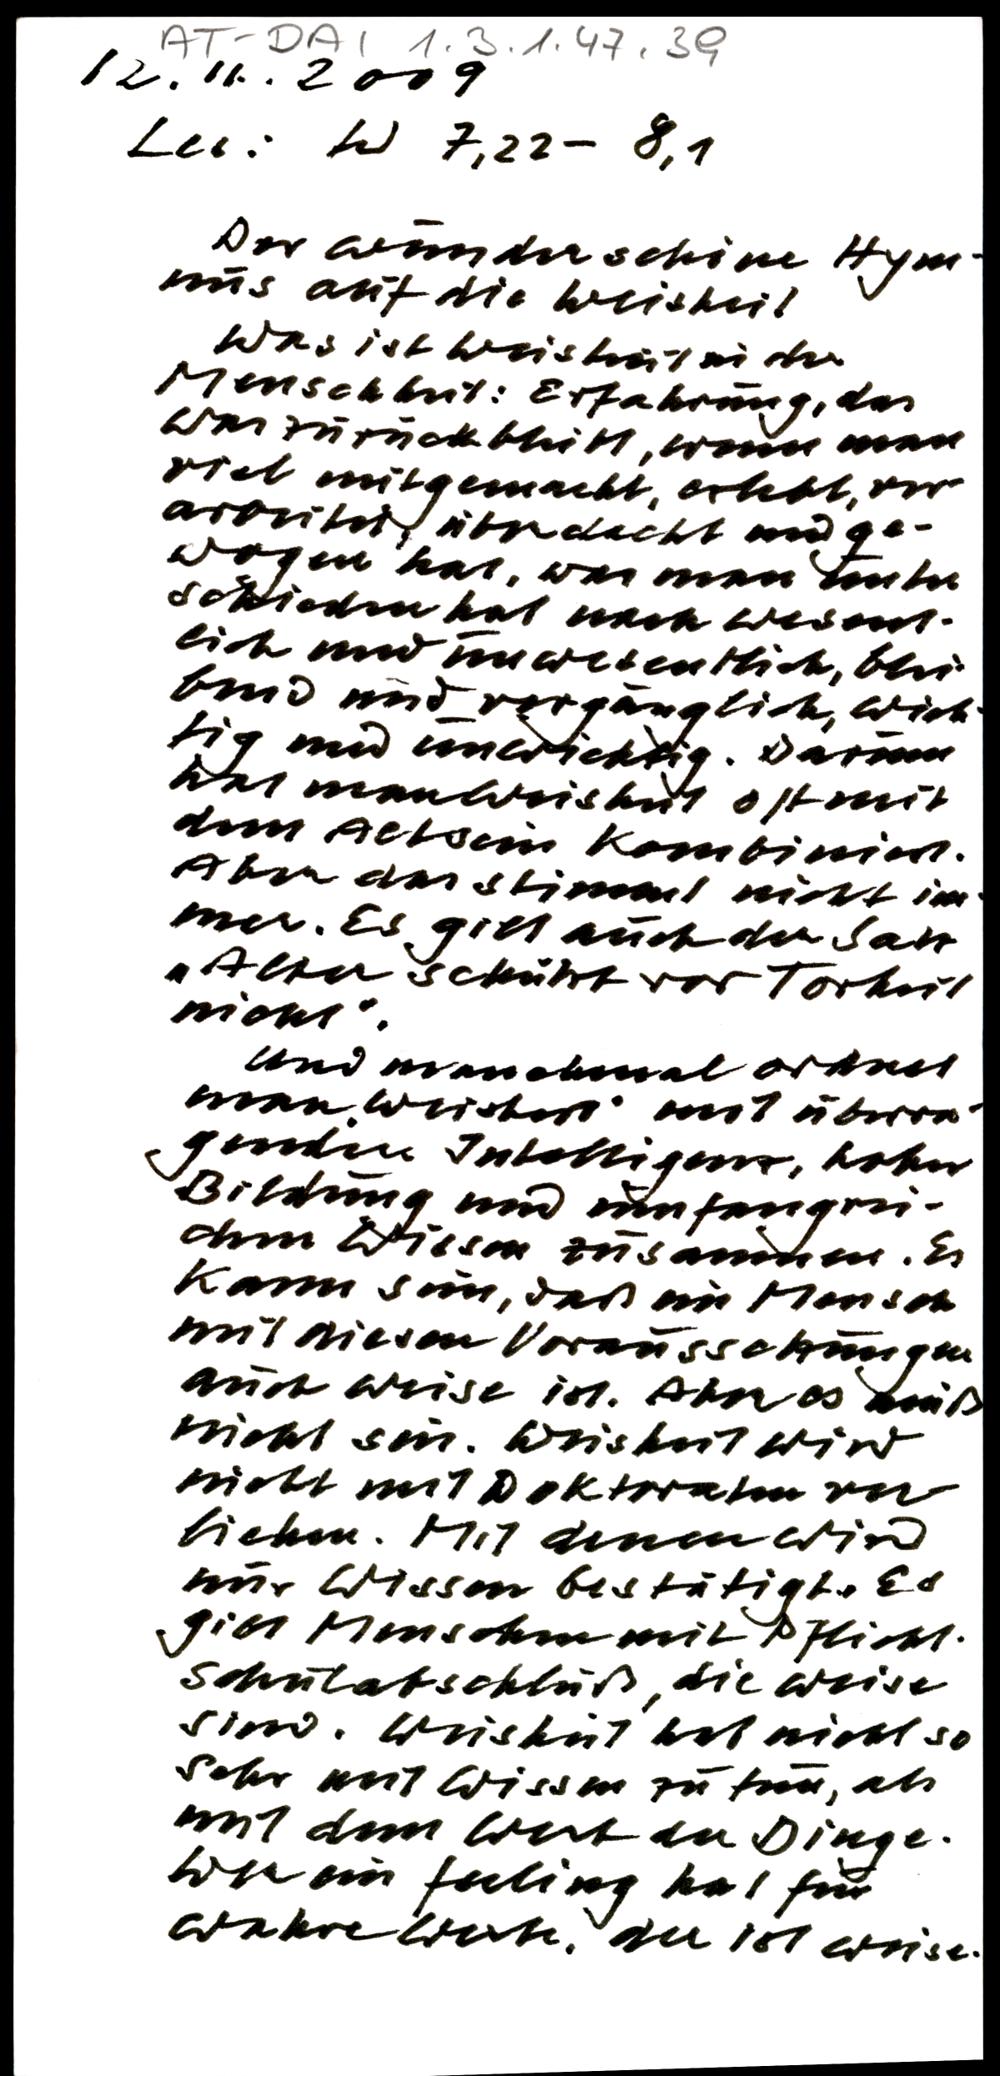 AT-DAI 1.3.1.47.39
12.11.2009
Les: W 7,22– 8,1
Der wunderschöne Hym-
nus auf die Weisheit
Was ist Weisheit in der
Menschheit: Erfahrung, das
was zurückbleibt, wenn man
viel mitgemacht, erlebt, ver
arbeitet, überdacht und ge-
wogen hat, was man unter
schieden hat nach wesent-
lich und unwesentlich, blei-
bend und vergänglich, wich-
tig und unwichtig. Darum
hat man Weisheit oft mit
dem Altsein kombiniert.
Aber das stimmt nicht im-
mer. Es gilt auch der Satz
„Alter schützt vor Torheit
nicht".
Und manchmal ordnet
man „Weisheit" mit überra-
gender Intelligenz, hoher
Bildung und umfangrei-
chem Wissen zusammen. Es
kann sein, daß ein Mensch
mit diesen Voraussetzungen
auch weise ist. Aber es muß
nicht sein. Weisheit wird
nicht mit Doktoraten ver
liehen. Mit denen wird
nur Wissen bestätigt. Es
gibt Menschen mit Pflicht-
schulabschluß, die weise
sind. Weisheit hat nicht so
sehr mit Wissen zu tun, als
mit dem Wert der Dinge.
Wer ein feeling hat für
wahre Werte, der ist weise.